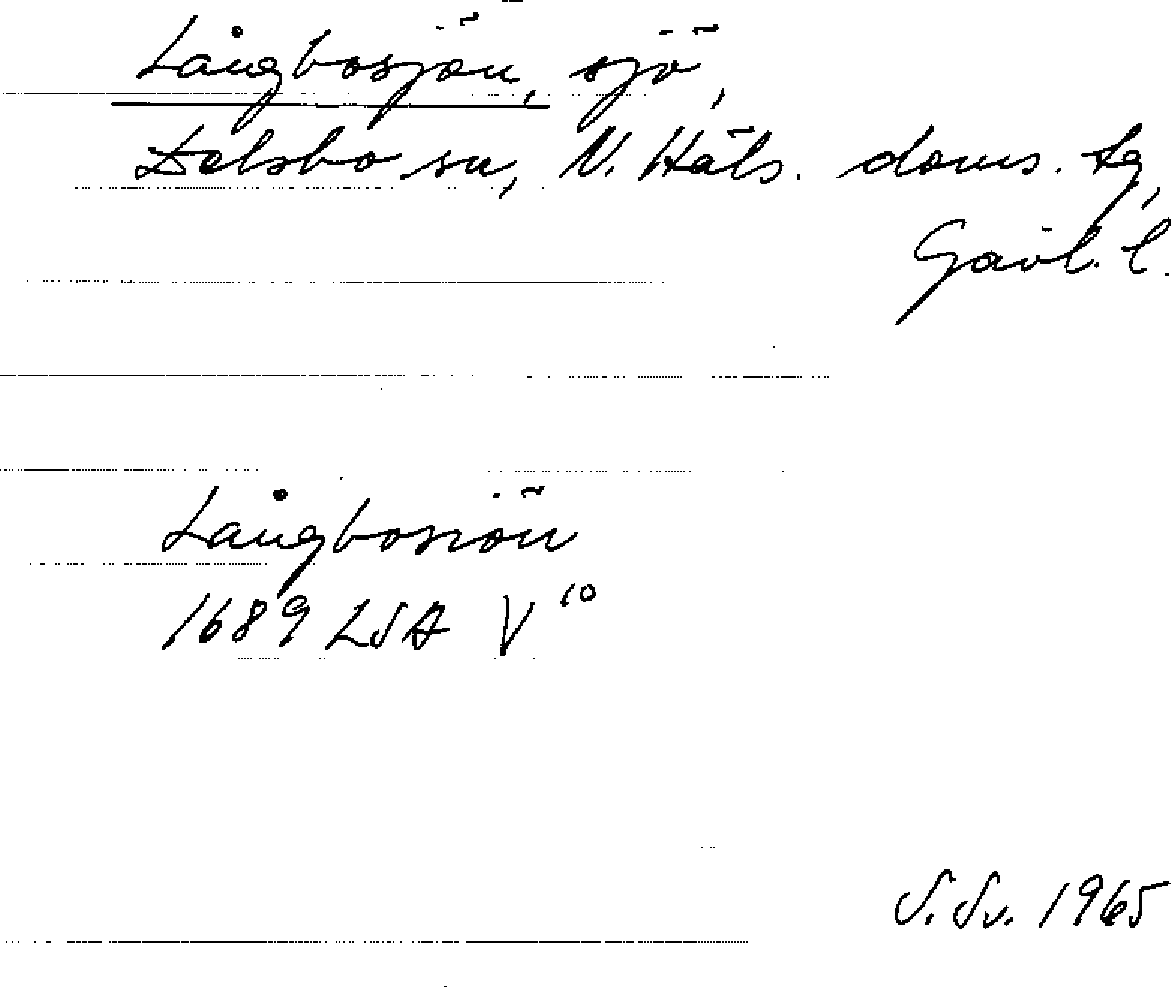 Långbosjön, sjö,
Delsbo sn, N. Häls. doms. tg,
Gävl. l.
Långbosiön
1689 LSA V¹⁰
S. Sv. 1965